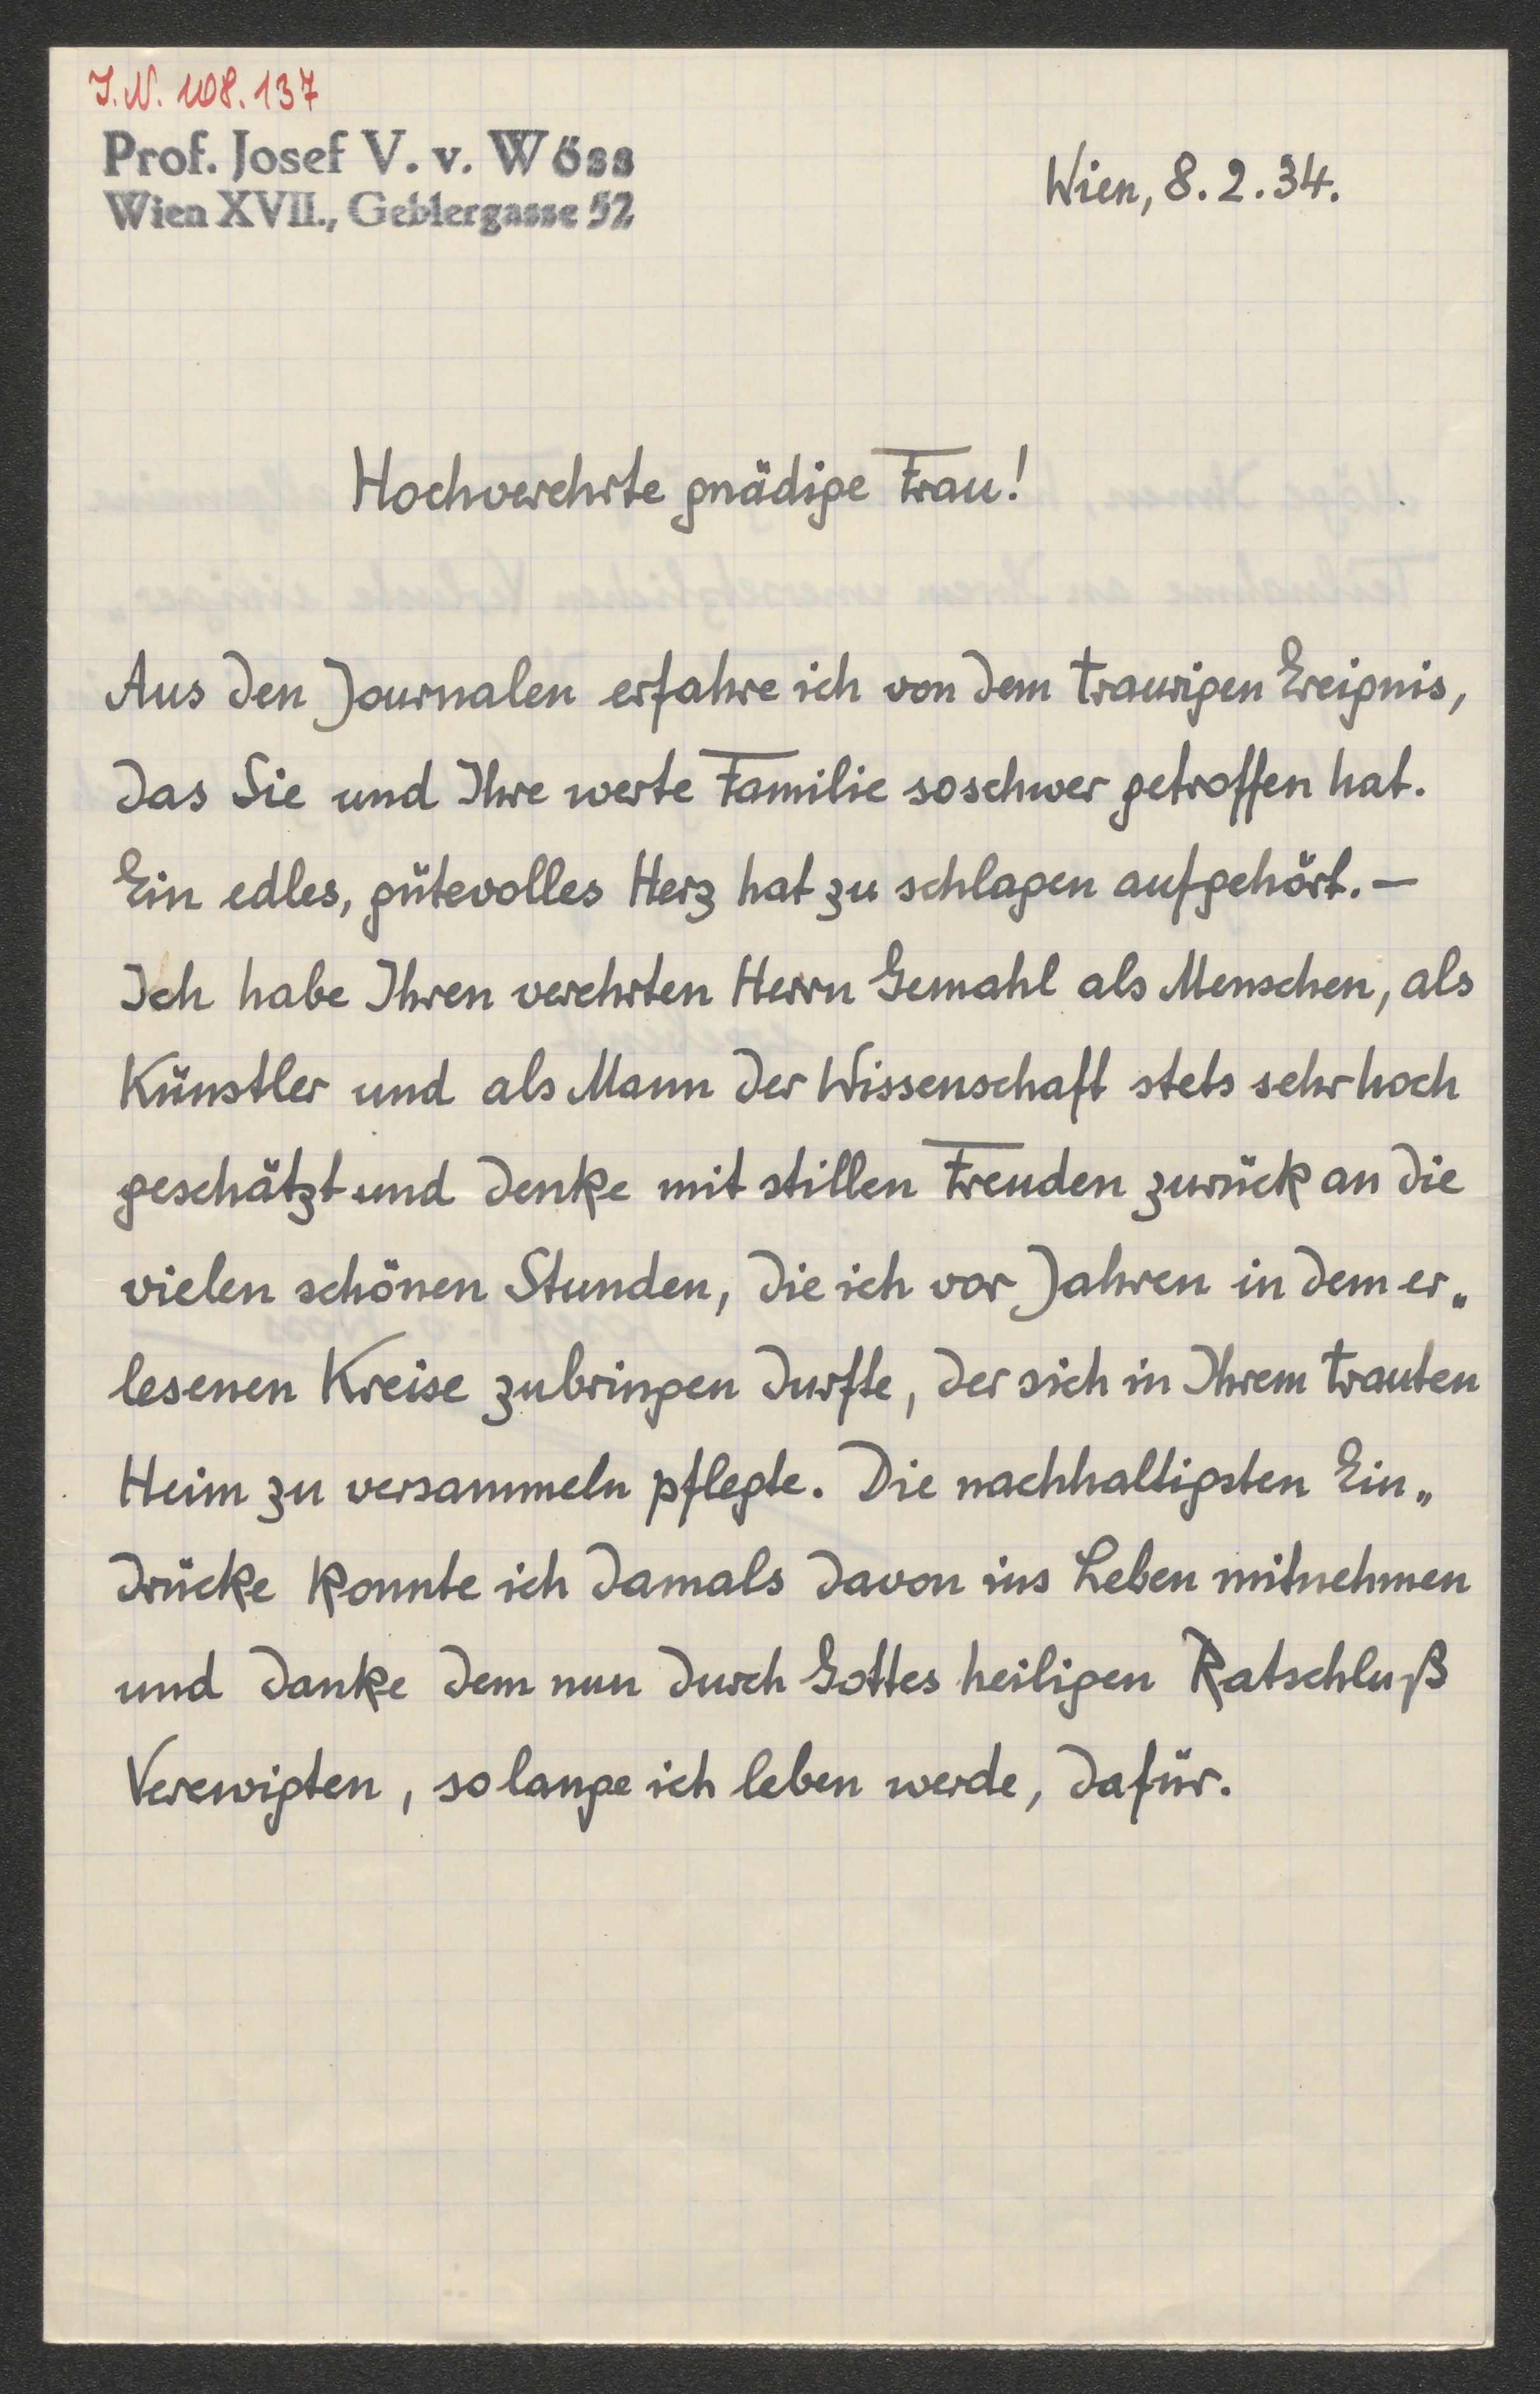 I.N. 108.137
Prof. Josef V. v. Wöss
Wien XVII., Geblergasse 52
Wien, 8.2.34.
Hochverehrte gnädige Frau!
Aus den Journalen erfahre ich von dem traurigen Ereignis,
das Sie und Ihre werte Familie so schwer getroffen hat.
Ein edles, gütevolles Herz hat zu schlagen aufgehört. —
Ich habe Ihren verehrten Herrn Gemahl als Menschen, als
Künstler und als Mann der Wissenschaft stets sehr hoch
geschätzt und denke mit stillen Freuden zurück an die
vielen schönen Stunden, die ich vor Jahren in dem er„
lesenen Kreise zubringen durfte, der sich in Ihrem trauten
Heim zu versammeln pflegte. Die nachhaltigsten Ein„
drücke konnte ich damals davon ins Leben mitnehmen
und danke dem nun durch Gottes heiligen Ratschluß
Verewigten, so lange ich leben werde, dafür.